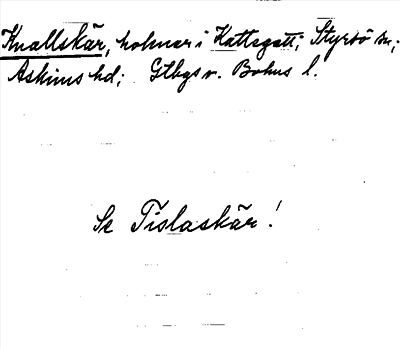 Knallskär, holmar i Kattegatt; Styrsö sn;
Askims hd; Gtbgs v. Bohus l.
Se Tislaskär!